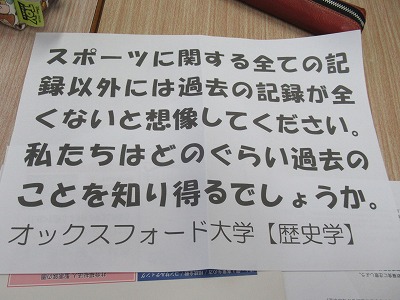 スポーツに関する全ての記
録以外には過去の記録が全
くないと想像してください。
私たちはどのぐらい過去の
ことを知り得るでしょうか。
オックスフォード大学【歴史学】